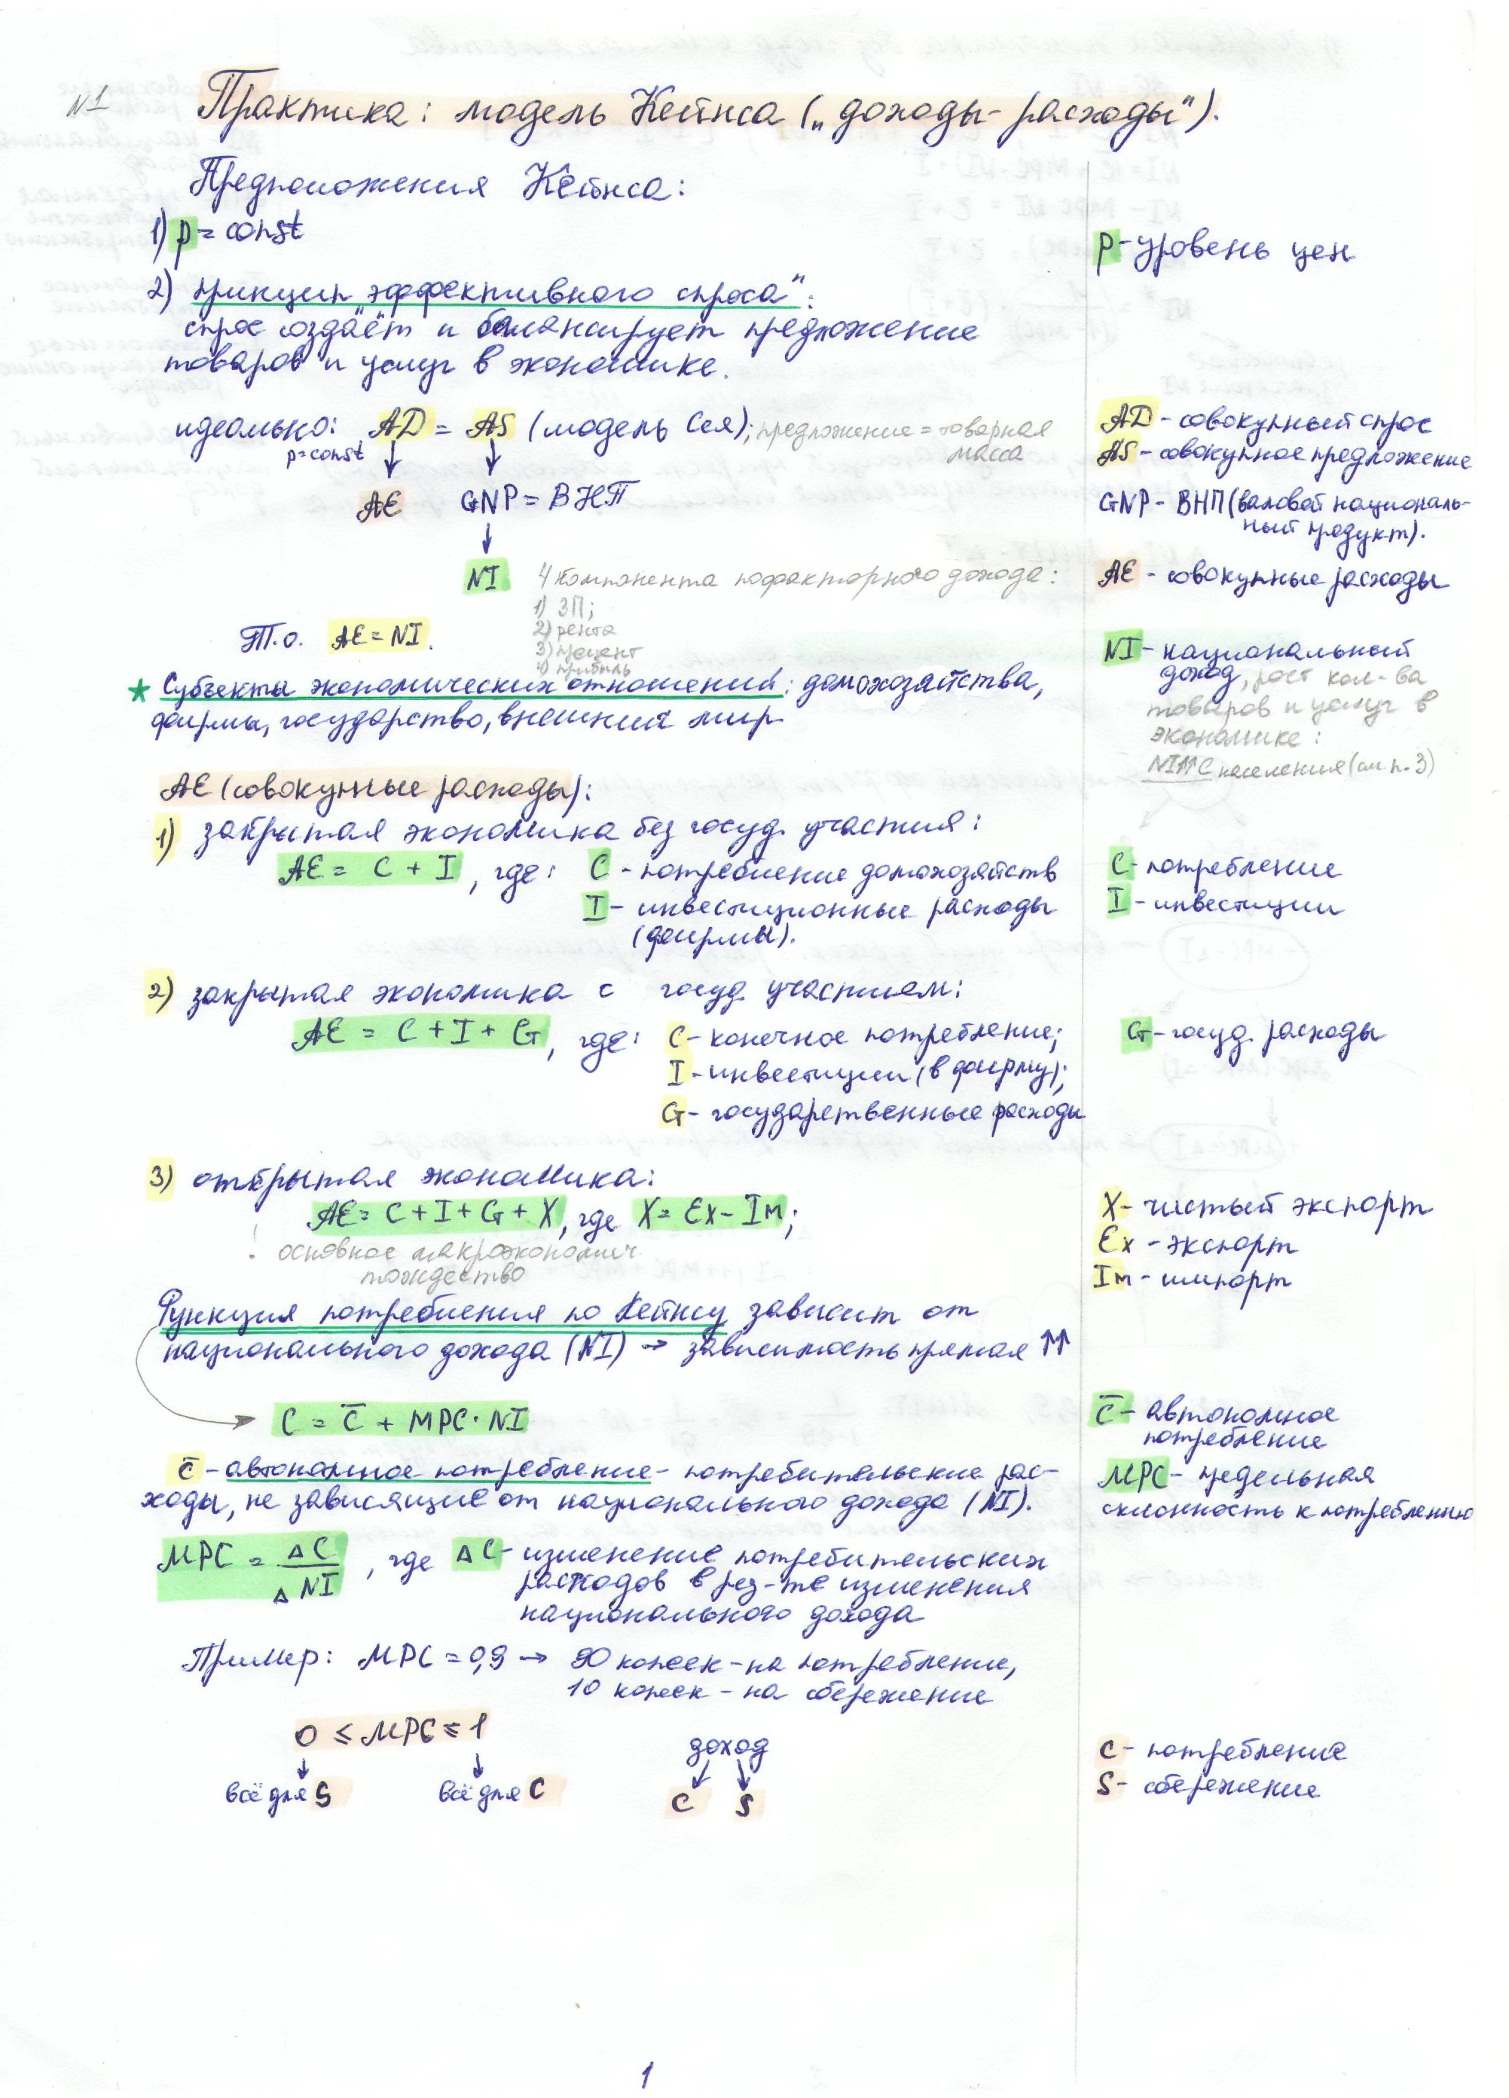 N1
Практика: модель Кейнса („доходы-расходы“).
Предположения Кейнса:
1) p = const
p - уровень цен
2) принцип „эффективного спроса“:
спрос создаёт и балансирует предложение
товаров и услуг в экономике.
идеально: AD = AS (модель Сея); предложение = товарная
масса
p=const
AE GNP = ВНП
NI
AD - совокупный спрос
AS - совокупное предложение
GNP - ВНП (валовой националь-
ный продукт).
AE - совокупные расходы
4 компонента пофакторного дохода:
1) ЗП;
2) рента
3) процент
4) прибыль
Т.о. AE = NI.
NI - национальный
доход, рост кол-ва
товаров и услуг в
экономике:
NI↑↑C населения (см п.3)
* Субъекты экономических отношений: домохозяйства,
фирмы, государство, внешний мир
AE (совокупные расходы):
1) закрытая экономика без госуд. участия:
AE = C + I, где: C - потребление домохозяйств
I - инвестиционные расходы
(фирмы).
C - потребление
I - инвестиции
2) закрытая экономика с госуд. участием:
AE = C + I + G, где: C - конечное потребление;
I - инвестиции (в фирму);
G - государственные расходы
G - госуд. расходы
3) открытая экономика:
AE = C + I + G + X, где X = Ex - Im;
! основное макроэкономич.
тождество
X - чистый экспорт
Ex - экспорт
Im - импорт
Функция потребления по Кейнсу зависит от
национального дохода (NI) → зависимость прямая ↑↑
C = C̅ + MPC · NI
C̅ - автономное
потребление
C̅ - автономное потребление - потребительские рас-
ходы, не зависящие от национального дохода (NI).
MPC - предельная
склонность к потреблению
MPC = ΔC / ΔNI, где ΔC - изменение потребительских
расходов в рез-те изменения
национального дохода
Пример: MPC = 0,9 → 90 копеек - на потребление,
10 копеек - на сбережение
0 ≤ MPC ≤ 1
всё для S всё для C
доход
C S
C - потребление
S - сбережение
1